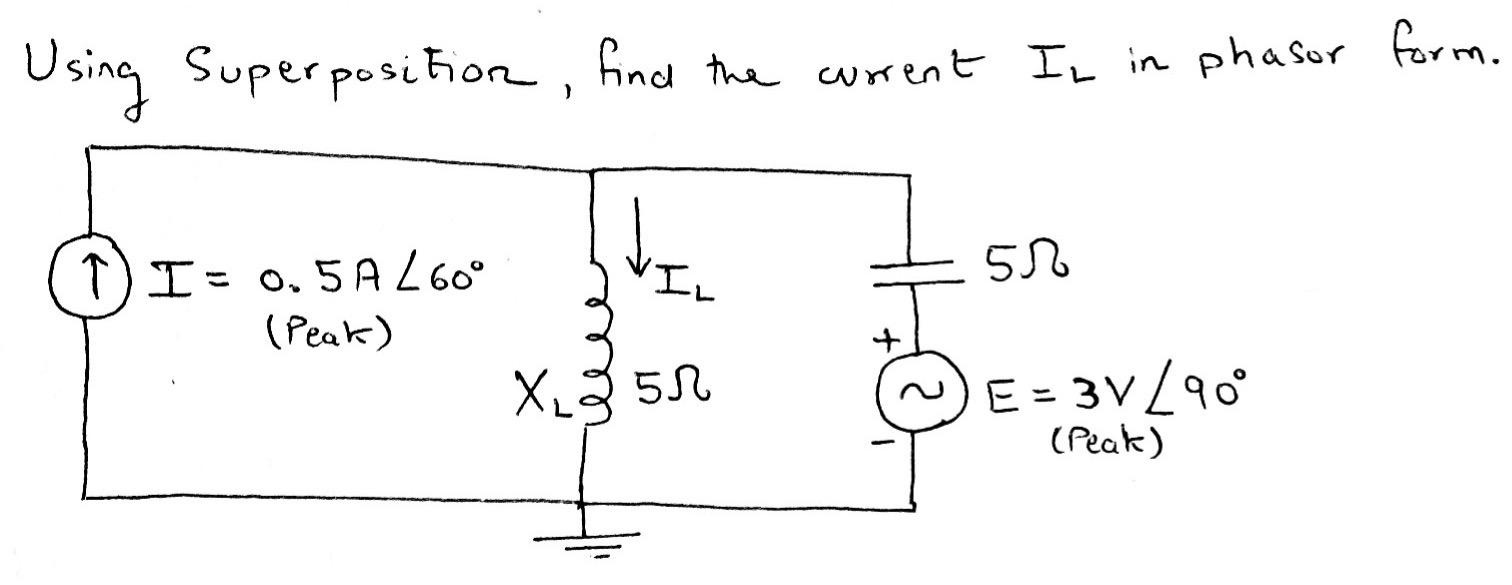 Using Superposition, find the current IL in phasor form.
I = 0.5A∠60°
(Peak)
IL
XL 5Ω
5Ω
+
E = 3V∠90°
(Peak)
-